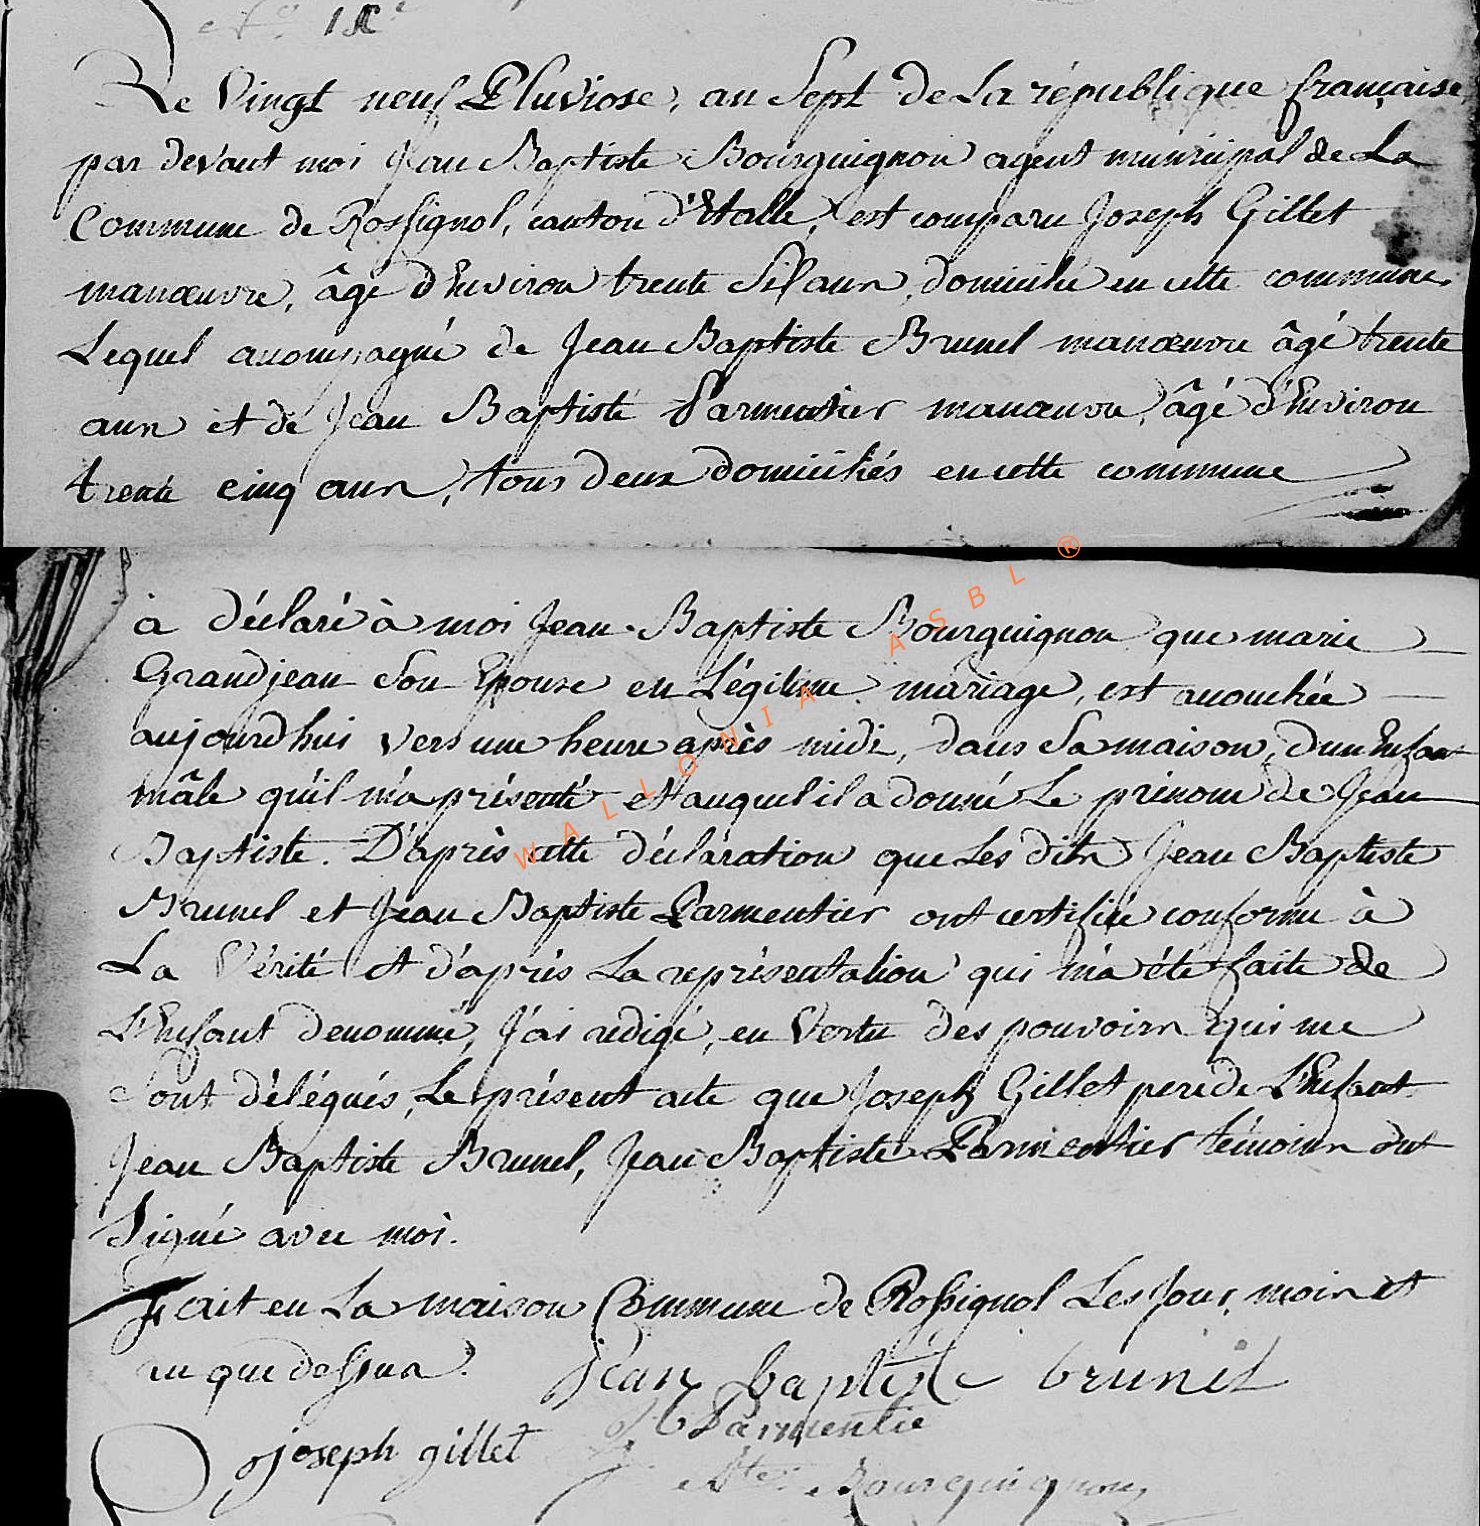 N.o
Le Vingt neuf Pluviose, an Sept de La république française
par devant moi Jean Baptiste Bourguignon agent municipal de La
Commune de Rossignol, canton d'Etalle, est comparu Joseph Gillet
manœuvre, âgé d'Environ trente Six ans, domicilié en cette commune,
Lequel accompagné de Jean Baptiste Brunel manœuvre âgé trente
ans et de Jean Baptiste Parmentier manœuvre, âgé d'Environ
trente cinq ans, tous deux domiciliés en cette commune
à déclaré à moi Jean-Baptiste Bourguignon que marie
Grandjean Son Epouse en Légitime mariage, est accouchée
aujourdhui vers une heure après midi, dans Sa maison, d'un Enfant
mâle qu'il m'a présenté et auquel il a donné Le prénom de Jean
Baptiste. D'après cette déclaration que Les dits Jean Baptiste
Brunel et Jean Baptiste Parmentier ont certifiée conforme à
La Vérité et d'après La représentation qui m'a été faite de
L'Enfant denommé, J'ai redigé, en Vertu des pouvoirs qui me
Sont délégués, Le présent acte que Joseph Gillet pere de L'Enfant
Jean Baptiste Brunel, Jean Baptiste Parmentier témoins ont
Signé avec moi.
Fait en La maison Commune de Rossignol Les Jour, mois et
an que dessus.
jean baptiste brunel
joseph gillet
Parmentie
Bte Bourguignon
WALLONIA ASBL ®